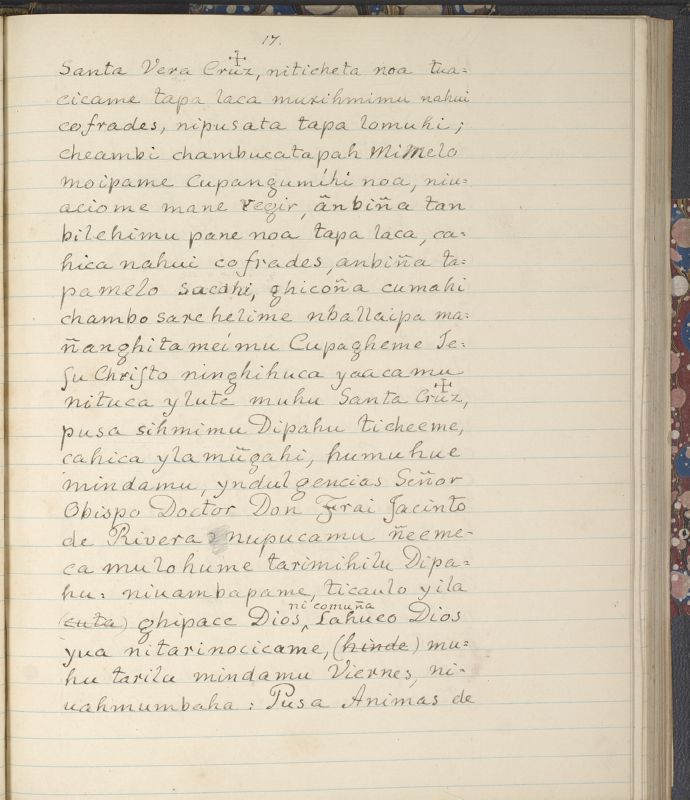 17.
Santa Vera Cruz, niticheta noa tua=
cicame tapa laca muxihmimu nahui
cofrades, nipusata tapa lomuhi;
cheambi chambucatapah Mimelo
moipame Cupangumíhi noa, niu=
aciome mane regir, ãnbiña tan
bilehimu pane noa tapa laca, ca=
hica nahui cofrades, anbiña ta=
pamelo sacahi, ghicoña cumahi
chambo sare helime nballaipa ma=
ñanghitameímu Cupagheme Je=
ſu Chriſto ninghihuca yaacamu
nituca ylute muhu Santa Cruz,
pusa sihmimu Dipahu ticheeme,
cahica ylamũgahi, humuhue
mindamu, yndulgencias Señor
Obispo Doctor Don Frai Jacinto
de Rivera nupucamu ñeeme-
ca mulohume tarimihilu Dipa=
hu: niuambapame, ticaulo yila
(cuta) ghipace Dios, ni comuña Lahueo Dios
yua nitarinocicame, (hinde) mu=
hu tarilu mindamu Viernes, ni-
uahmumbaha: Pusa Animas de